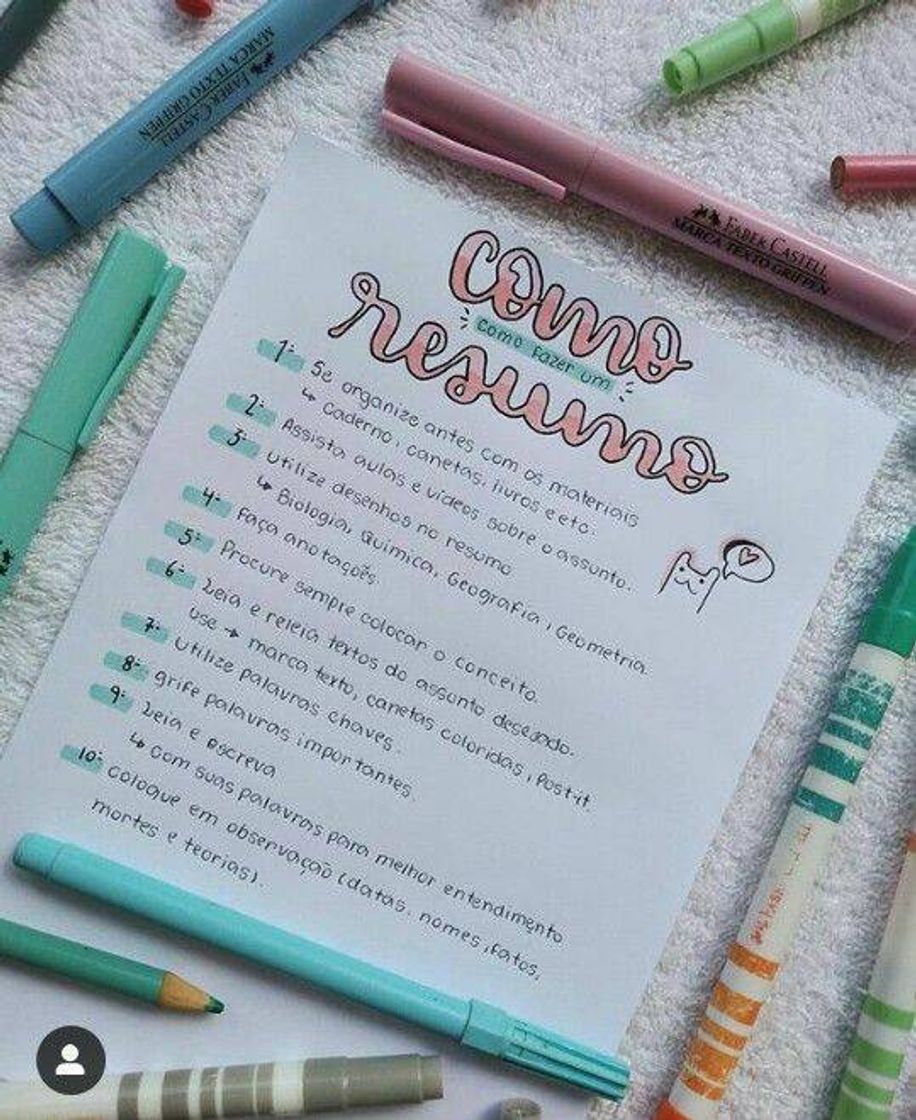 FABER CASTELL
MARCA TEXTO GRIFPEN
FABER CASTELL
MARCA TEXTO GRIFPEN
como
como fazer um
resumo
1: Se organize antes com os materiais
↳ Caderno, canetas, livros e etc.
2: Assista aulas e vídeos sobre o assunto.
3: utilize desenhos no resumo
↳ Biologia, Química, Geografia, Geometria.
4: Faça anotações
5: Procure sempre colocar o conceito.
6: Leia e releia textos do assunto desejado.
use → marca texto, canetas coloridas, Post-it
7: Utilize palavras chaves.
8: grife palavras importantes.
9: Leia e escreva
↳ com suas palavras para melhor entendimento
10: coloque em observação (datas, nomes, fatos,
mortes e teorias).